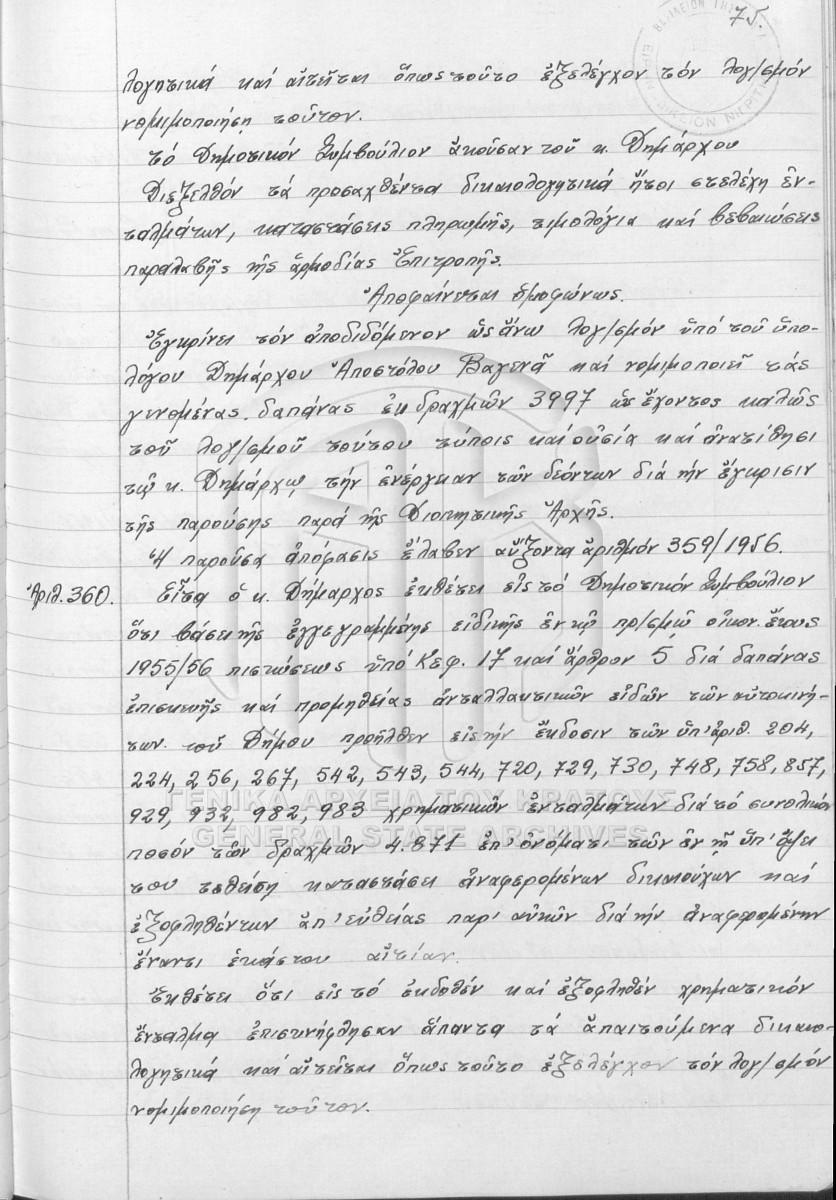 75.
λογητικά καί αἰτεῖται ὅπως τοῦτο ἐξελέγχον τόν λογ/σμόν
νομιμοποιήσῃ τοῦτον.
Τό Δημοτικόν Συμβούλιον ἀκοῦσαν τοῦ κ. Δημάρχου
Διεξελθόν τά προσαχθέντα δικαιολογητικά ἤτοι στελέχη ἐν-
ταλμάτων, καταστάσεις πληρωμῆς, τιμολόγια καί βεβαιώσεις
παραλαβῆς τῆς ἁρμοδίας Ἐπιτροπῆς.
Ἀποφαίνεται ὁμοφώνως.
Ἐγκρίνει τόν ἀποδιδόμενον ὡς ἄνω λογ/σμόν ὑπό τοῦ ὑπο-
λόγου Δημάρχου Ἀποστόλου Βαγενᾶ καί νομιμοποιεῖ τάς
γενομένας δαπάνας ἐκ δραχμῶν 3997 ὡς ἔχοντος καλῶς
τοῦ λογ/σμοῦ τούτου τύποις καί οὐσίᾳ καί ἀνατίθησι
τῷ κ. Δημάρχῳ τήν ἐνέργειαν τῶν δεόντων διά τήν ἔγκρισιν
τῆς παρούσης παρά τῆς Διοικητικῆς Ἀρχῆς.
Ἡ παροῦσα ἀπόφασις ἔλαβεν αὔξοντα ἀριθμόν 359/1956.
Ἀριθ. 360. Εἶτα ὁ κ. Δήμαρχος ἐκθέτει εἰς τό Δημοτικόν Συμβούλιον
ὅτι βάσει τῆς ἐγγεγραμμένης εἰδικῆς ἐν τῷ πρ/σμῷ οἰκον. ἔτους
1955/56 πιστώσεως ὑπό Κεφ. 17 καί ἄρθρον 5 διά δαπάνας
ἐπισκευῆς καί προμηθείας ἀνταλλακτικῶν εἰδῶν τῶν αὐτοκινή-
των τοῦ Δήμου προῆλθεν εἰς τήν ἔκδοσιν τῶν ὑπ' ἀριθ. 204,
224, 256, 267, 542, 543, 544, 720, 729, 730, 748, 758, 857,
929, 932, 982, 983 χρηματικῶν ἐνταλμάτων διά τό συνολικόν
ποσόν τῶν δραχμῶν 4.871 ἐπ' ὀνόματι τῶν ἐν τῇ ὑπ' ὄψει
του τεθείσῃ καταστάσει ἀναφερομένων δικαιούχων καί
ἐξοφληθέντων ἀπ' εὐθείας παρ' αὐτῶν διά τήν ἀναφερομένην
ἔναντι ἑκάστου αἰτίαν.
Ἐκθέτει ὅτι εἰς τό ἐκδοθέν καί ἐξοφληθέν χρηματικόν
ἔνταλμα ἐπισυνήφθησαν ἅπαντα τά ἀπαιτούμενα δικαιο-
λογητικά καί αἰτεῖται ὅπως τοῦτο ἐξελέγχον τόν λογ/σμόν
νομιμοποιήσῃ τοῦτον.
ΓΕΝΙΚΑ ΑΡΧΕΙΑ ΤΟΥ ΚΡΑΤΟΥΣ
GENERAL STATE ARCHIVES